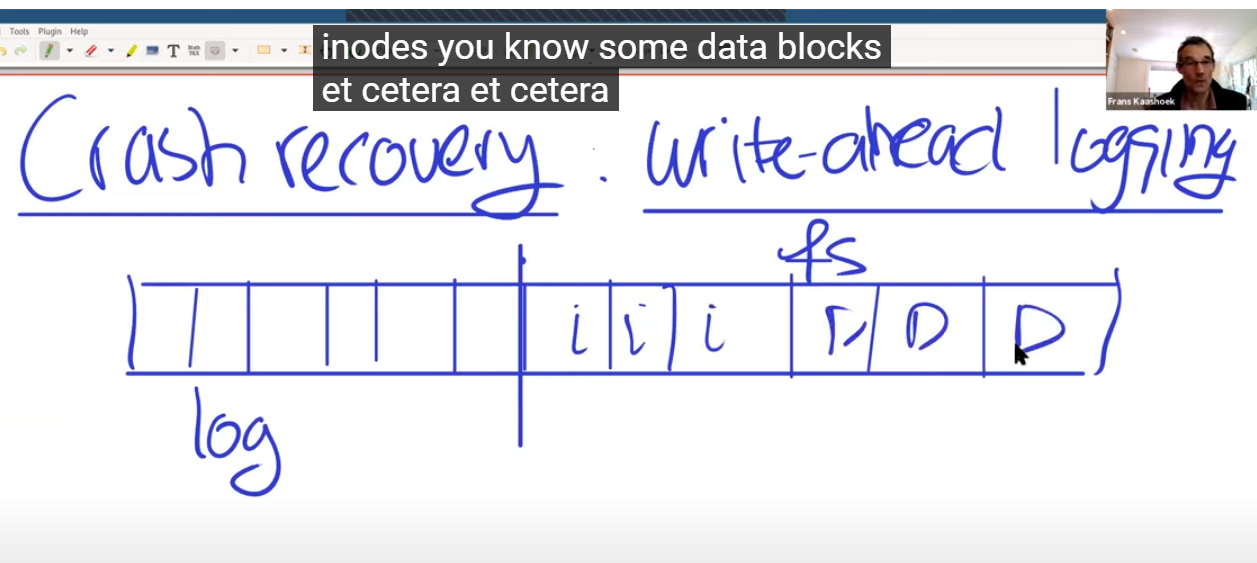 Tools Plugin Help
inodes you know some data blocks
et cetera et cetera
Frans Kaashoek
Crash recovery : write-ahead logging
fs
i i i D D D
log